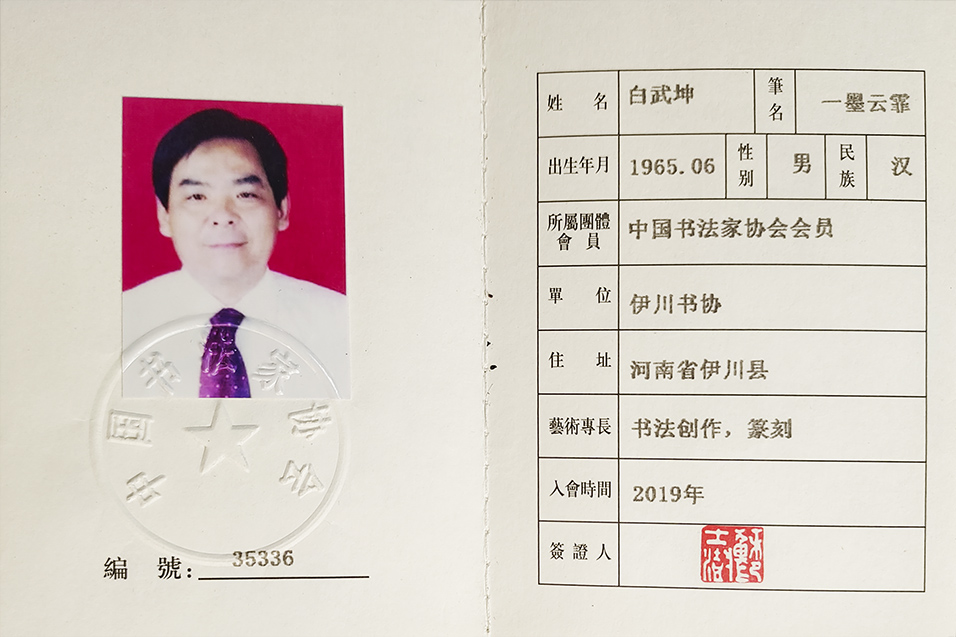 中国书法家协会
編 號: 35336
姓 名 白武坤 筆名 一墨云霏
出生年月 1965.06 性别 男 民族 汉
所屬團體會員 中国书法家协会会员
單 位 伊川书协
住 址 河南省伊川县
藝術專長 书法创作，篆刻
入會時間 2019年
簽證人